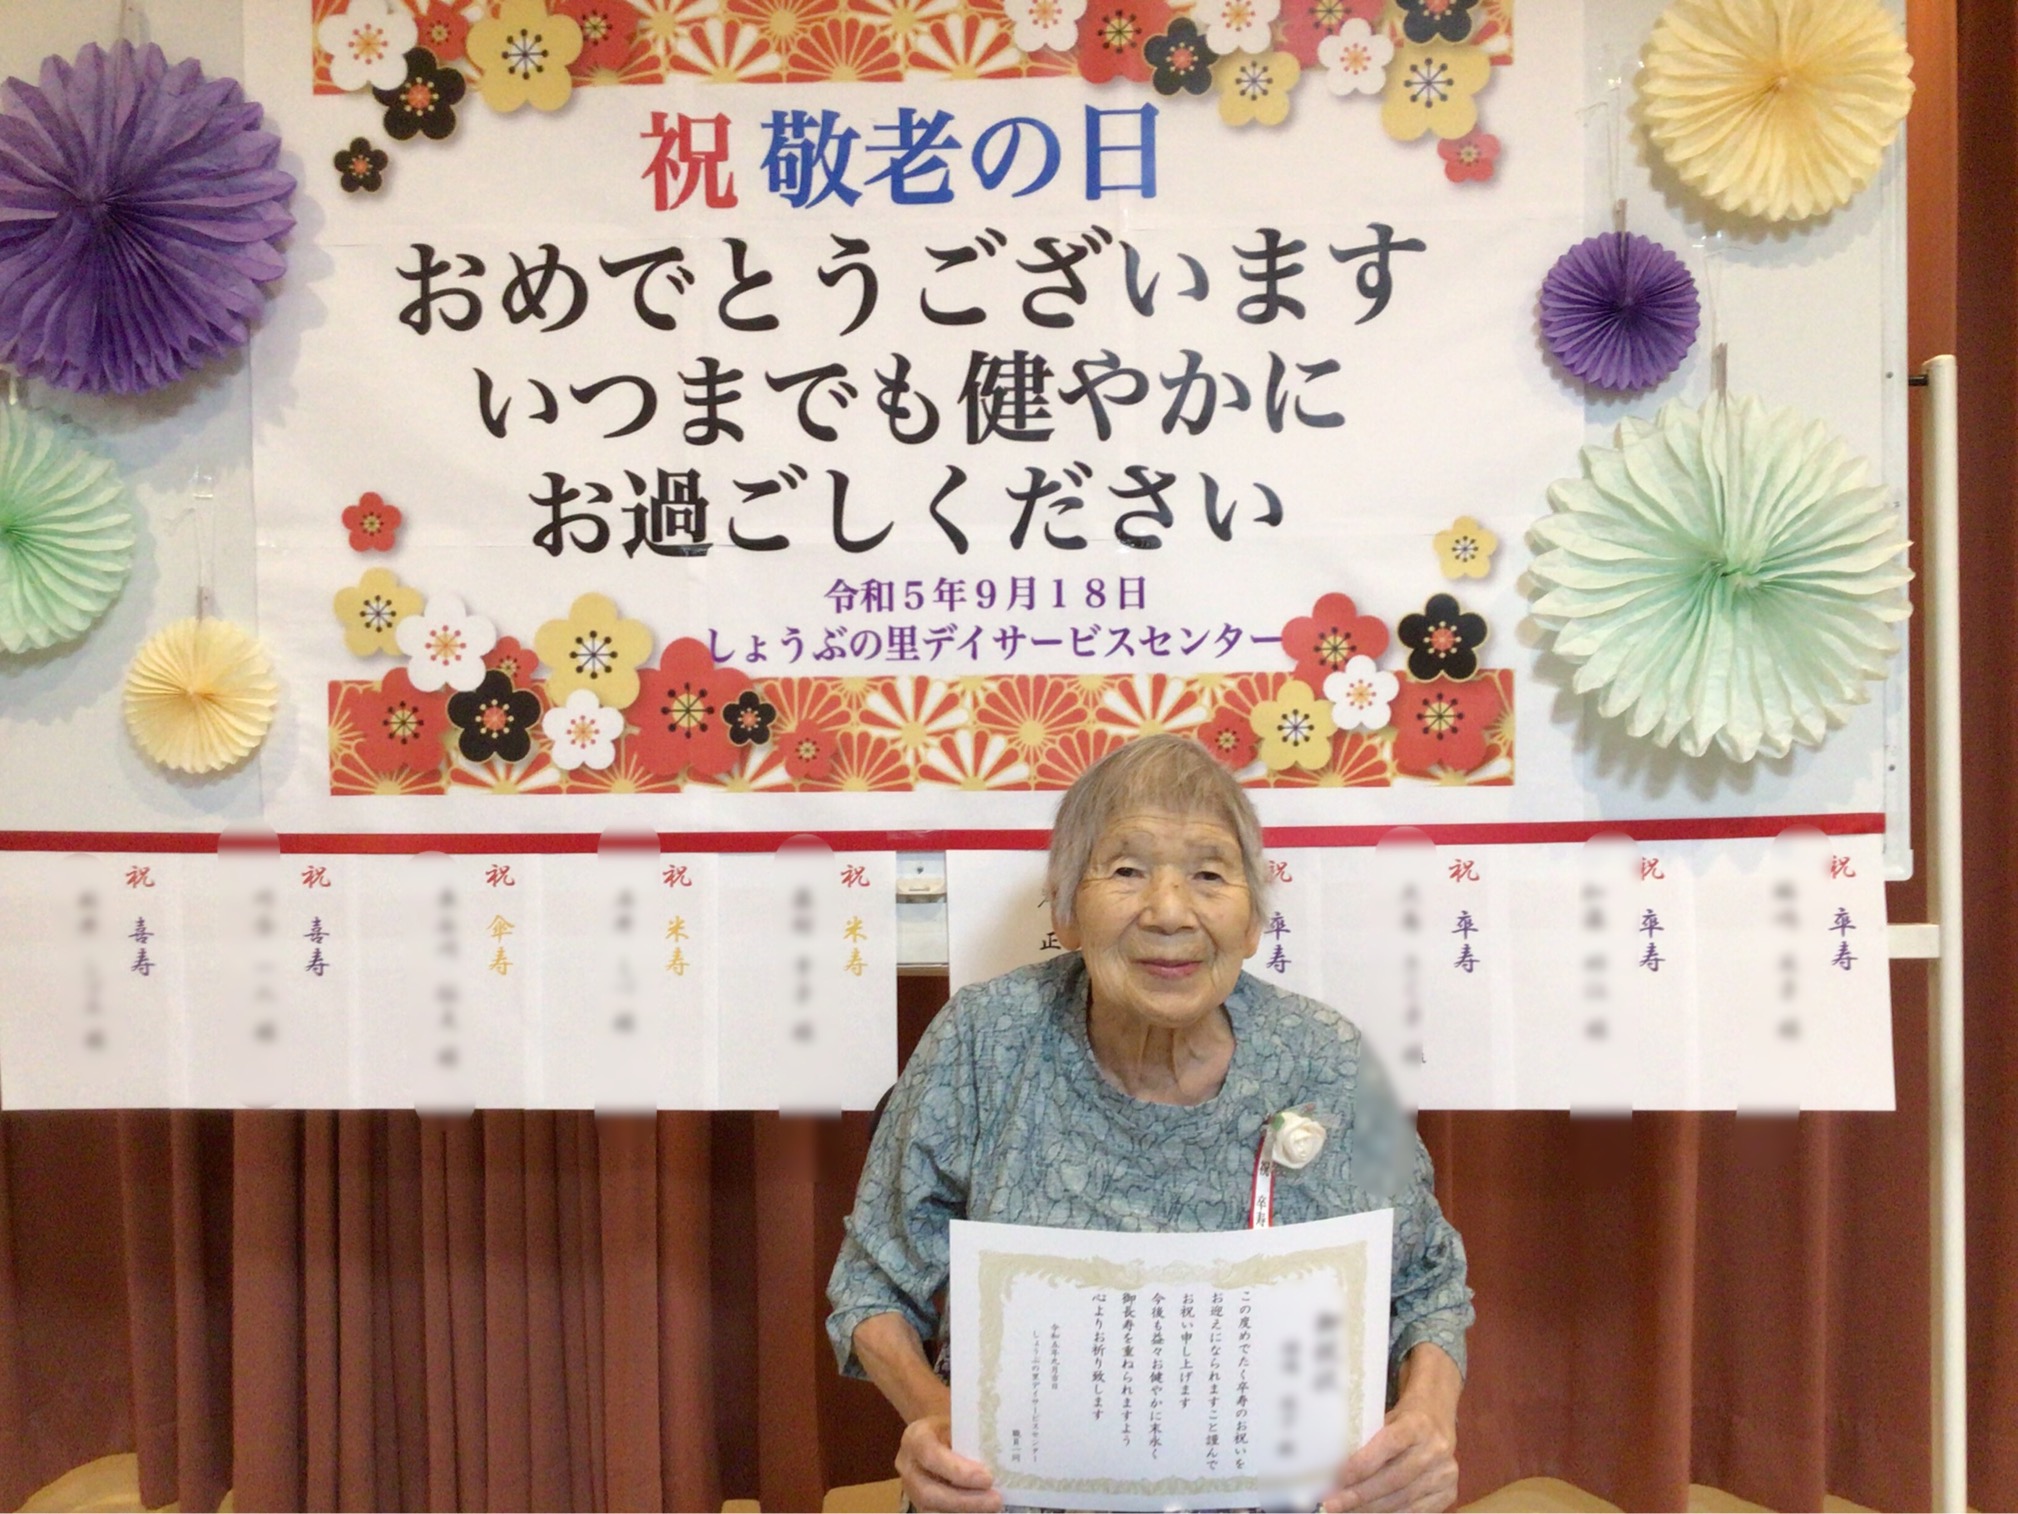 祝 敬老の日
おめでとうございます
いつまでも健やかに
お過ごしください
令和5年9月18日
しょうぶの里デイサービスセンター
祝 喜寿
祝 喜寿
祝 傘寿
祝 米寿
祝 米寿
正
祝 卒寿
祝 卒寿
祝 卒寿
祝 卒寿
祝 卒寿
この度めでたく卒寿のお祝いを
お迎えになられますこと謹んで
お祝い申し上げます
今後も益々お健やかに末永く
御長寿を重ねられますよう
心よりお祈り致します
令和五年九月吉日
しょうぶの里デイサービスセンター
職員一同